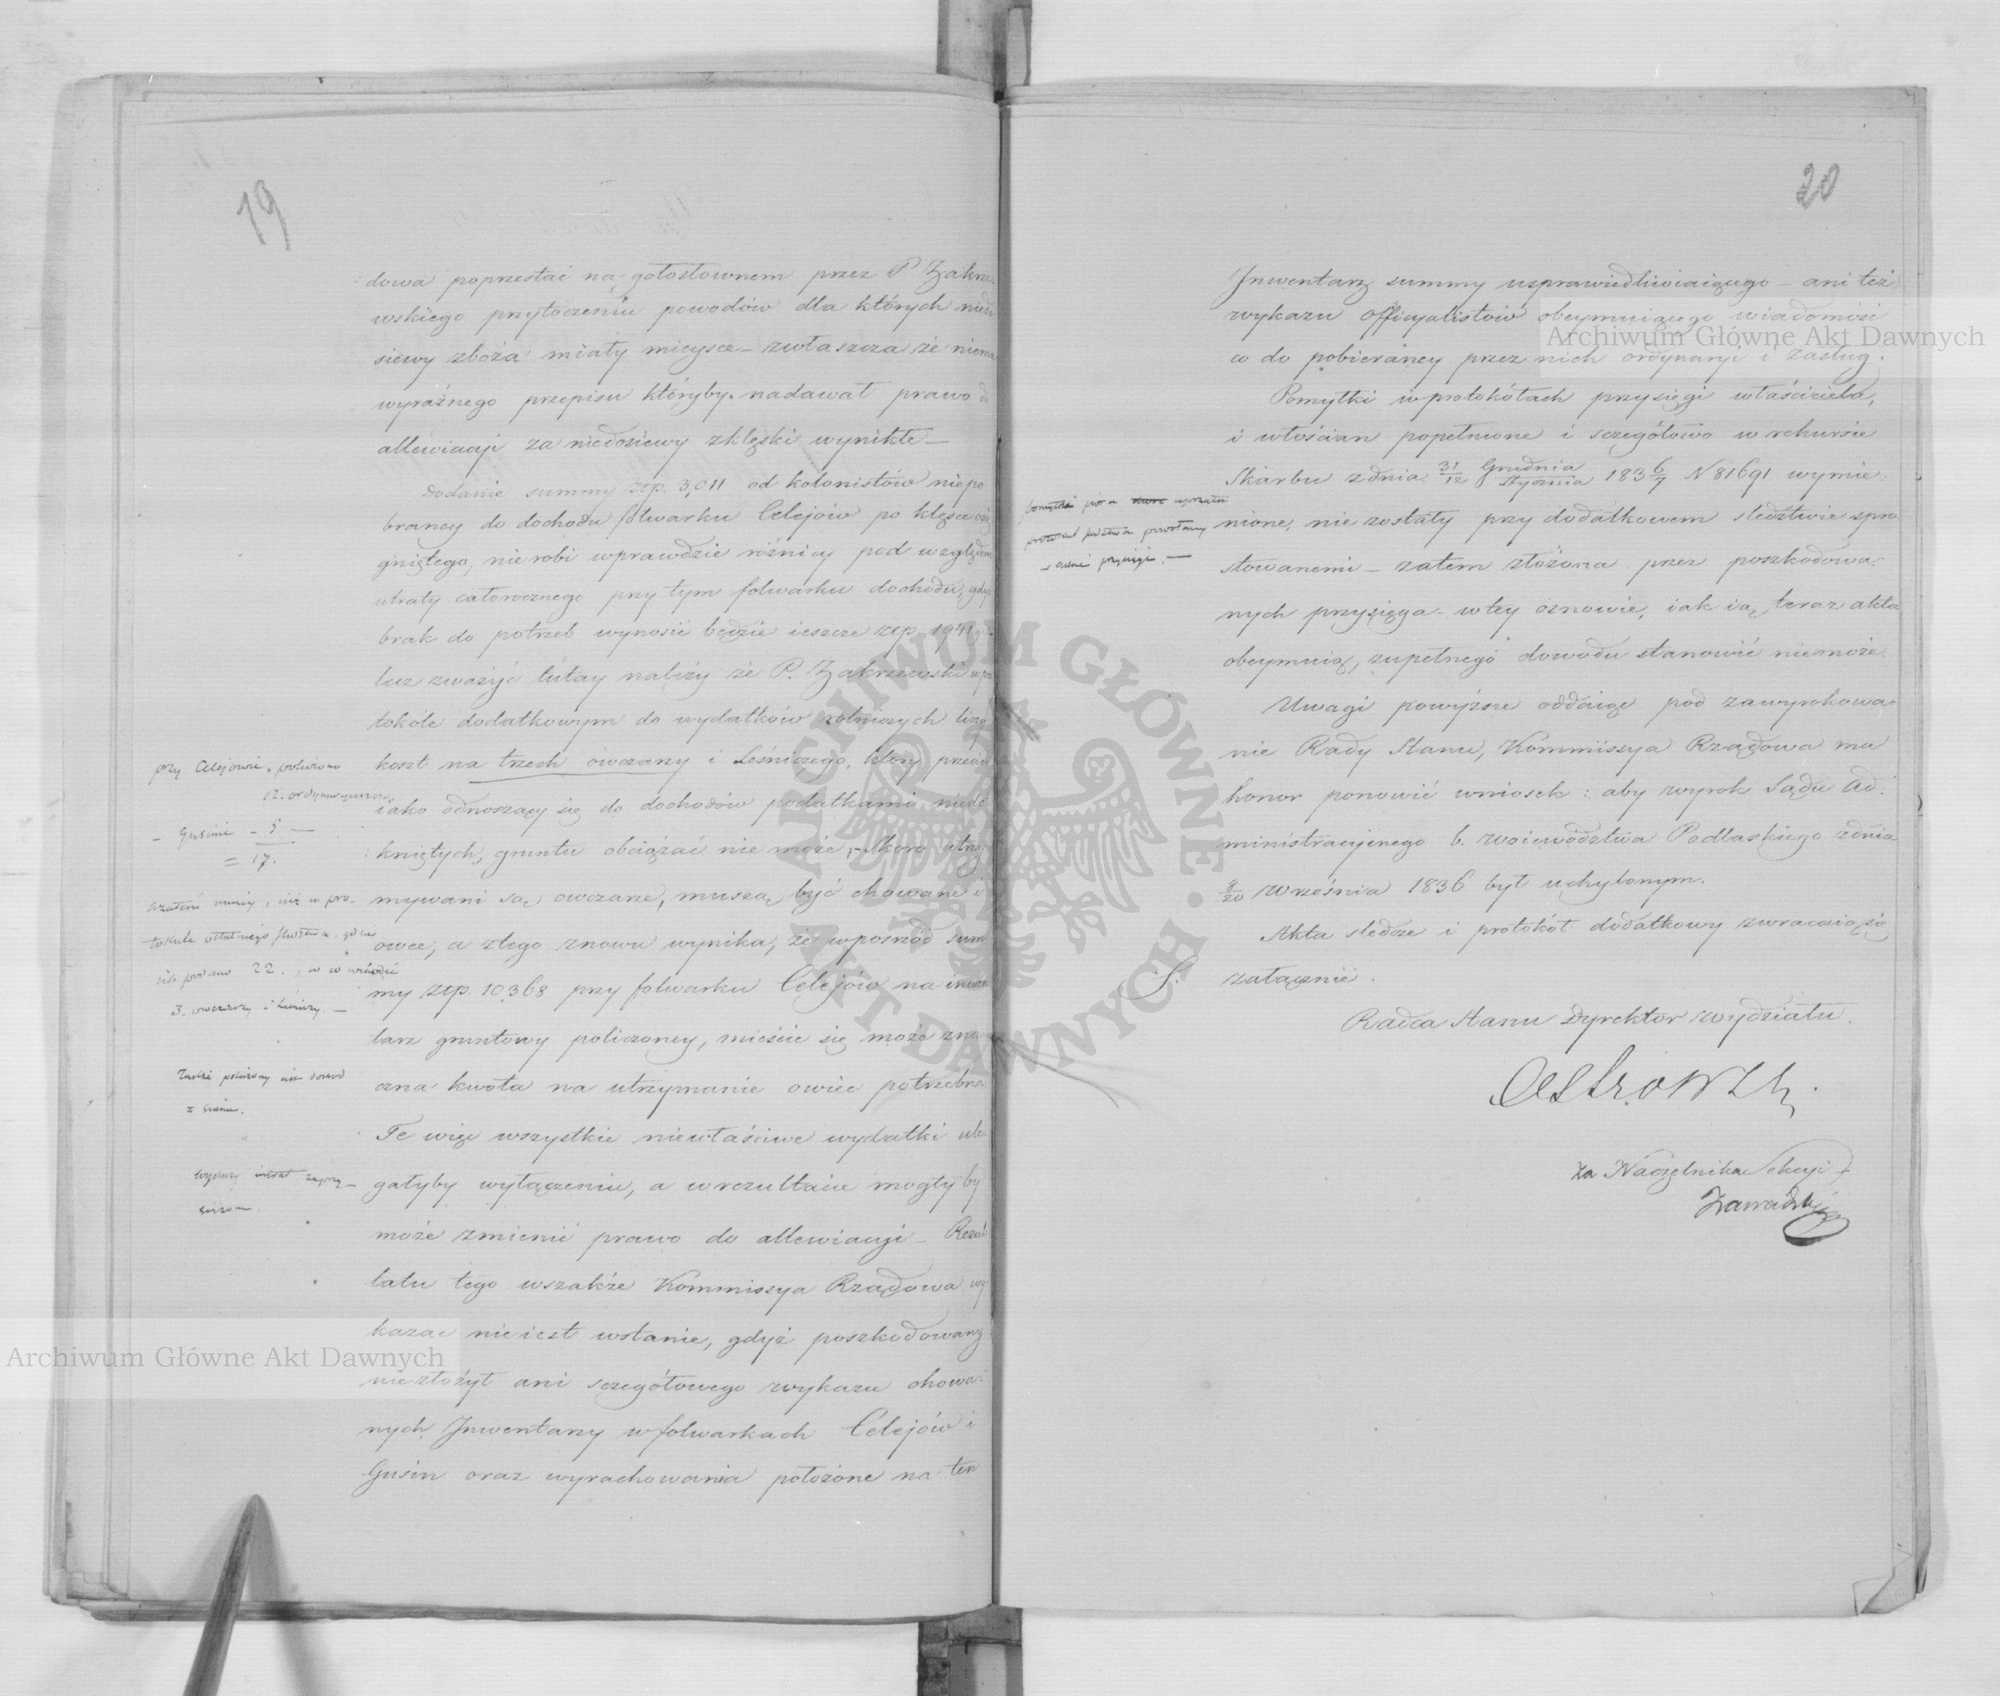 19
dowa poprzestać na gołosłownem przez P Zakrze
wskiego przytoczeniu powodów dla których niedo
siewy zboża miały mieysce – zwłaszcza że niema
wyraźnego przepisu któryby nadawał prawo do
allewiacyi za niedosiewy z klęski wynikłe –
Dodanie summy złp. 3,011 od kolonistów niepo
braney do dochodu folwarku Celejów po klęsce osią
gniętego, nie robi wprawdzie różnicy pod względem
utraty całorocznego przy tym folwarku dochodu, gdyż
brak do potrzeb wynosić będzie ieszcze złp. 1941
lecz zważyć tutay należy że P. Zakrzewski w pro
tokóle dodatkowym do wydatków rolniczych liczy
koszt na trzech owczarzy i Leśniczego, który
iako odnoszący się do dochodów podatkami niedo
kniętych, gruntu obciążać nie może, – skoro utrzy
mywani są owczarze, muszą być chowane i
owce, a ztego znowu wynika, że wpośród sum
my złp. 10,368 przy folwarku Celejów na inwen
tarz gruntowy policzoney, mieście się może zna
czna kwota na utrzymanie owiec potrzebna.
Te więc wszystkie niewłaściwe wydatki ule
gałyby wyłączeniu, a w rezultacie mogłyby
może zmienić prawo do allewiacyi – Rezul
tatu tego wszakże Kommissya Rządowa wy
kazać nie iest wstanie, gdyż poszkodowany
nie złożył ani sczegółowego wykazu chowa
nych Inwentarzy w folwarkach Celejów i
Gusin oraz wyrachowania położone na ten
przy Celejowie położono
12. ordynaryuszów
– Gusinie – 5 –
= 17.
zatem mniej, niż w pro-
tokule ostatniego śledztwa, gdzie
podano 22.
3. owczarzy i leśniczy –
20
Inwentarz summy usprawiedliwiaiącego – ani też
wykazu officyalistów obeymuiącego wiadomość
co do pobieraney przez nich ordynaryi i zasług.
Pomyłki w protokółach przysięgi właściciela,
i włościan popełnione i sczegółowo w rekursie
Skarbu z dnia 31/12 Grudnia/Stycznia 183 6/7 N 81691 wymie
nione, nie zostały przy dodatkowem śledztwie spro
stowanemi – zatem złożona przez poszkodowa
nych przysięga w tey osnowie, iak ią teraz akta
obeymuią, zupełnego dowodu stanowić nie może.
Uwagi powyższe oddaiąc pod zawyrokowa
nie Rady Stanu, Kommissya Rządowa ma
honor ponowić wniosek: aby wyrok Sądu Ad
ministracyjnego b. Województwa Podlaskiego z dnia
8/20 Września 1836 był uchylonym.
Akta śledcze i protokół dodatkowy zwracaią się
S. załącznie.
Radca Stanu Dyrektor Wydziału.
za Naczelnika Sekcyi
Zawadzki
Archiwum Główne Akt Dawnych
Archiwum Główne Akt Dawnych
ARCHIWUM GŁÓWNE AKT DAWNYCH